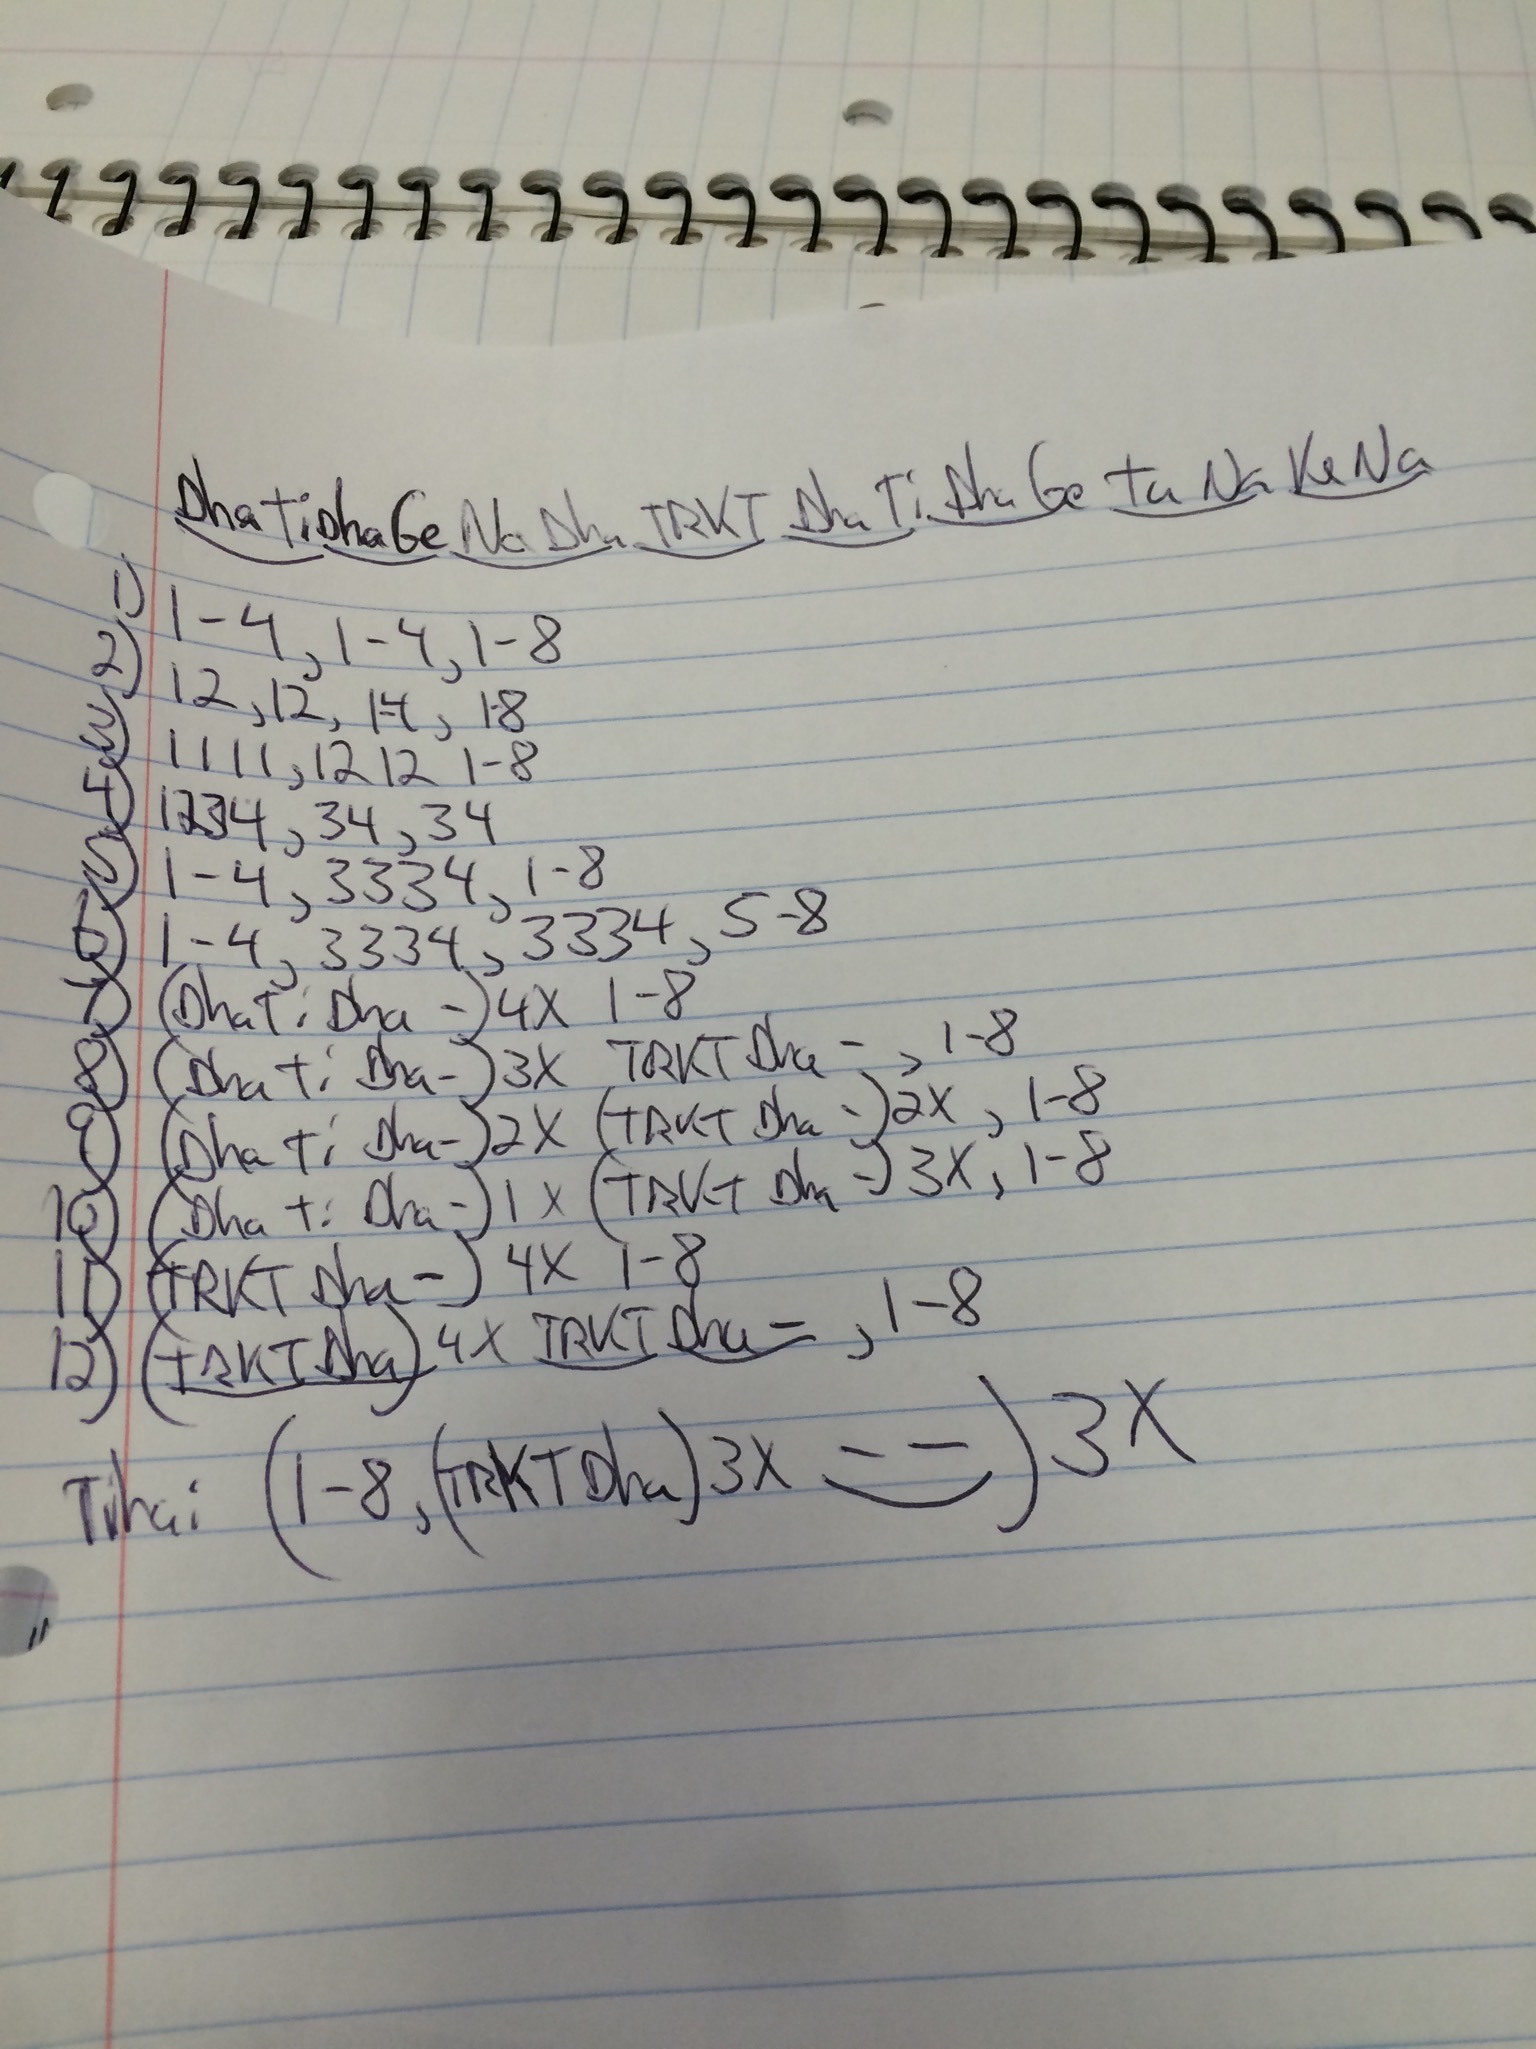 DhaTiDhaGe NaDha TRKT DhaTi DhaGe ta Na KeNa
1) 1-4, 1-4, 1-8
2) 12, 12, 1-4, 1-8
3) 1111, 1212 1-8
4) 1234, 34, 34
5) 1-4, 3334, 1-8
6) 1-4, 3334, 3334, 5-8
7) (DhaTi Dha -) 4X 1-8
8) (Dha ti Dha-) 3X TRKT Dha -, 1-8
9) (Dha ti Dha-) 2X (TRKT Dha -) 2X, 1-8
10) (Dha ti Dha-) 1X (TRKT Dha -) 3X, 1-8
11) (TRKT Dha -) 4X 1-8
12) (TRKT Dha) 4X TRKT Dha -, 1-8
Tihai (1-8, (TRKT Dha) 3X - -) 3X